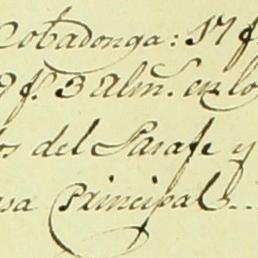 Cobadonga: 17 f.
9 f.s 3 Alm.s en lo
os del Parafe y
sa Principal..